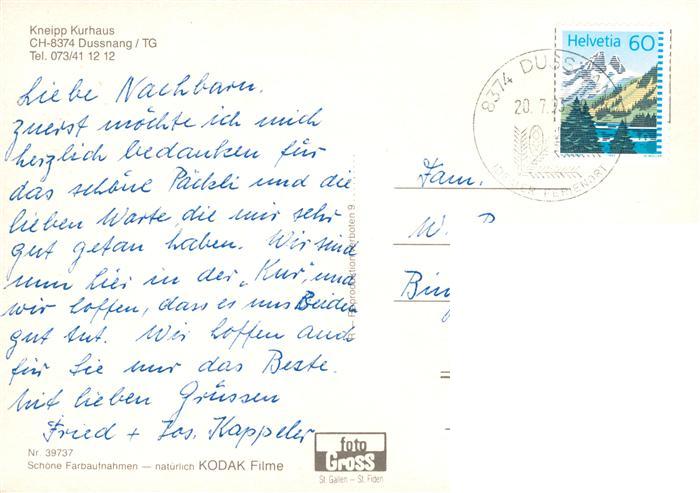 Kneipp Kurhaus
CH-8374 Dussnang / TG
Tel. 073/41 12 12
Liebe Nachbarn.
Zuerst möchte ich mich
herzlich bedanken für
das schöne Päckli und die
lieben Worte, die mir sehr
gut getan haben. Wir sind
nun hier in der „Kur", und
wir hoffen, dass es uns Beiden
gut tut. Wir hoffen auch
für Sie nur das Beste.
Mit lieben Grüssen
Fried + Jos. Kappeler
Nr. 39737
Schöne Farbaufnahmen — natürlich KODAK Filme
Reproduktion verboten 9
foto
Gross
St. Gallen – St. Fiden
Helvetia 60
8374 DUSS
20. 7.
FERIENORT
Fam.
W. P
Bing